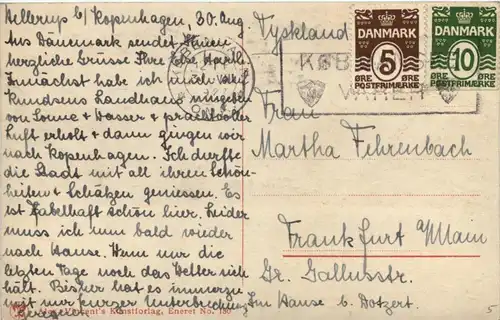 Hellerup b/ Kopenhagen, 30. Aug.
Aus Dänemark sendet Ihnen
herzliche Grüsse Ihre Else
Zunächst habe ich mich auf
Knudsens Landhaus umgeben
von Sonne + Wasser + prachtvoller
Luft erholt + dann gingen wir
nach Kopenhagen. Ich durfte
die Stadt mit all ihren Schön-
heiten + Schätzen geniessen. Es
ist fabelhaft schön hier. Leider
muss ich nun bald wieder
nach Hause. Wenn nur die
letzten Tage noch das Wetter sich
hält. Bisher hat es immerzu
mit nur kurzer Unterbrechung
geregnet.
Kunstforlag, Eneret No. 180
Tyskland
DANMARK
5
ØRE ØRE
POSTFRIMÆRKE
DANMARK
10
ØRE ØRE
POSTFRIMÆRKE
KØB
VARER
Frau
Martha Fehrenbach
Frankfurt a/Main
Gr. Gallusstr.
Im Hause b. Dotzert.
5